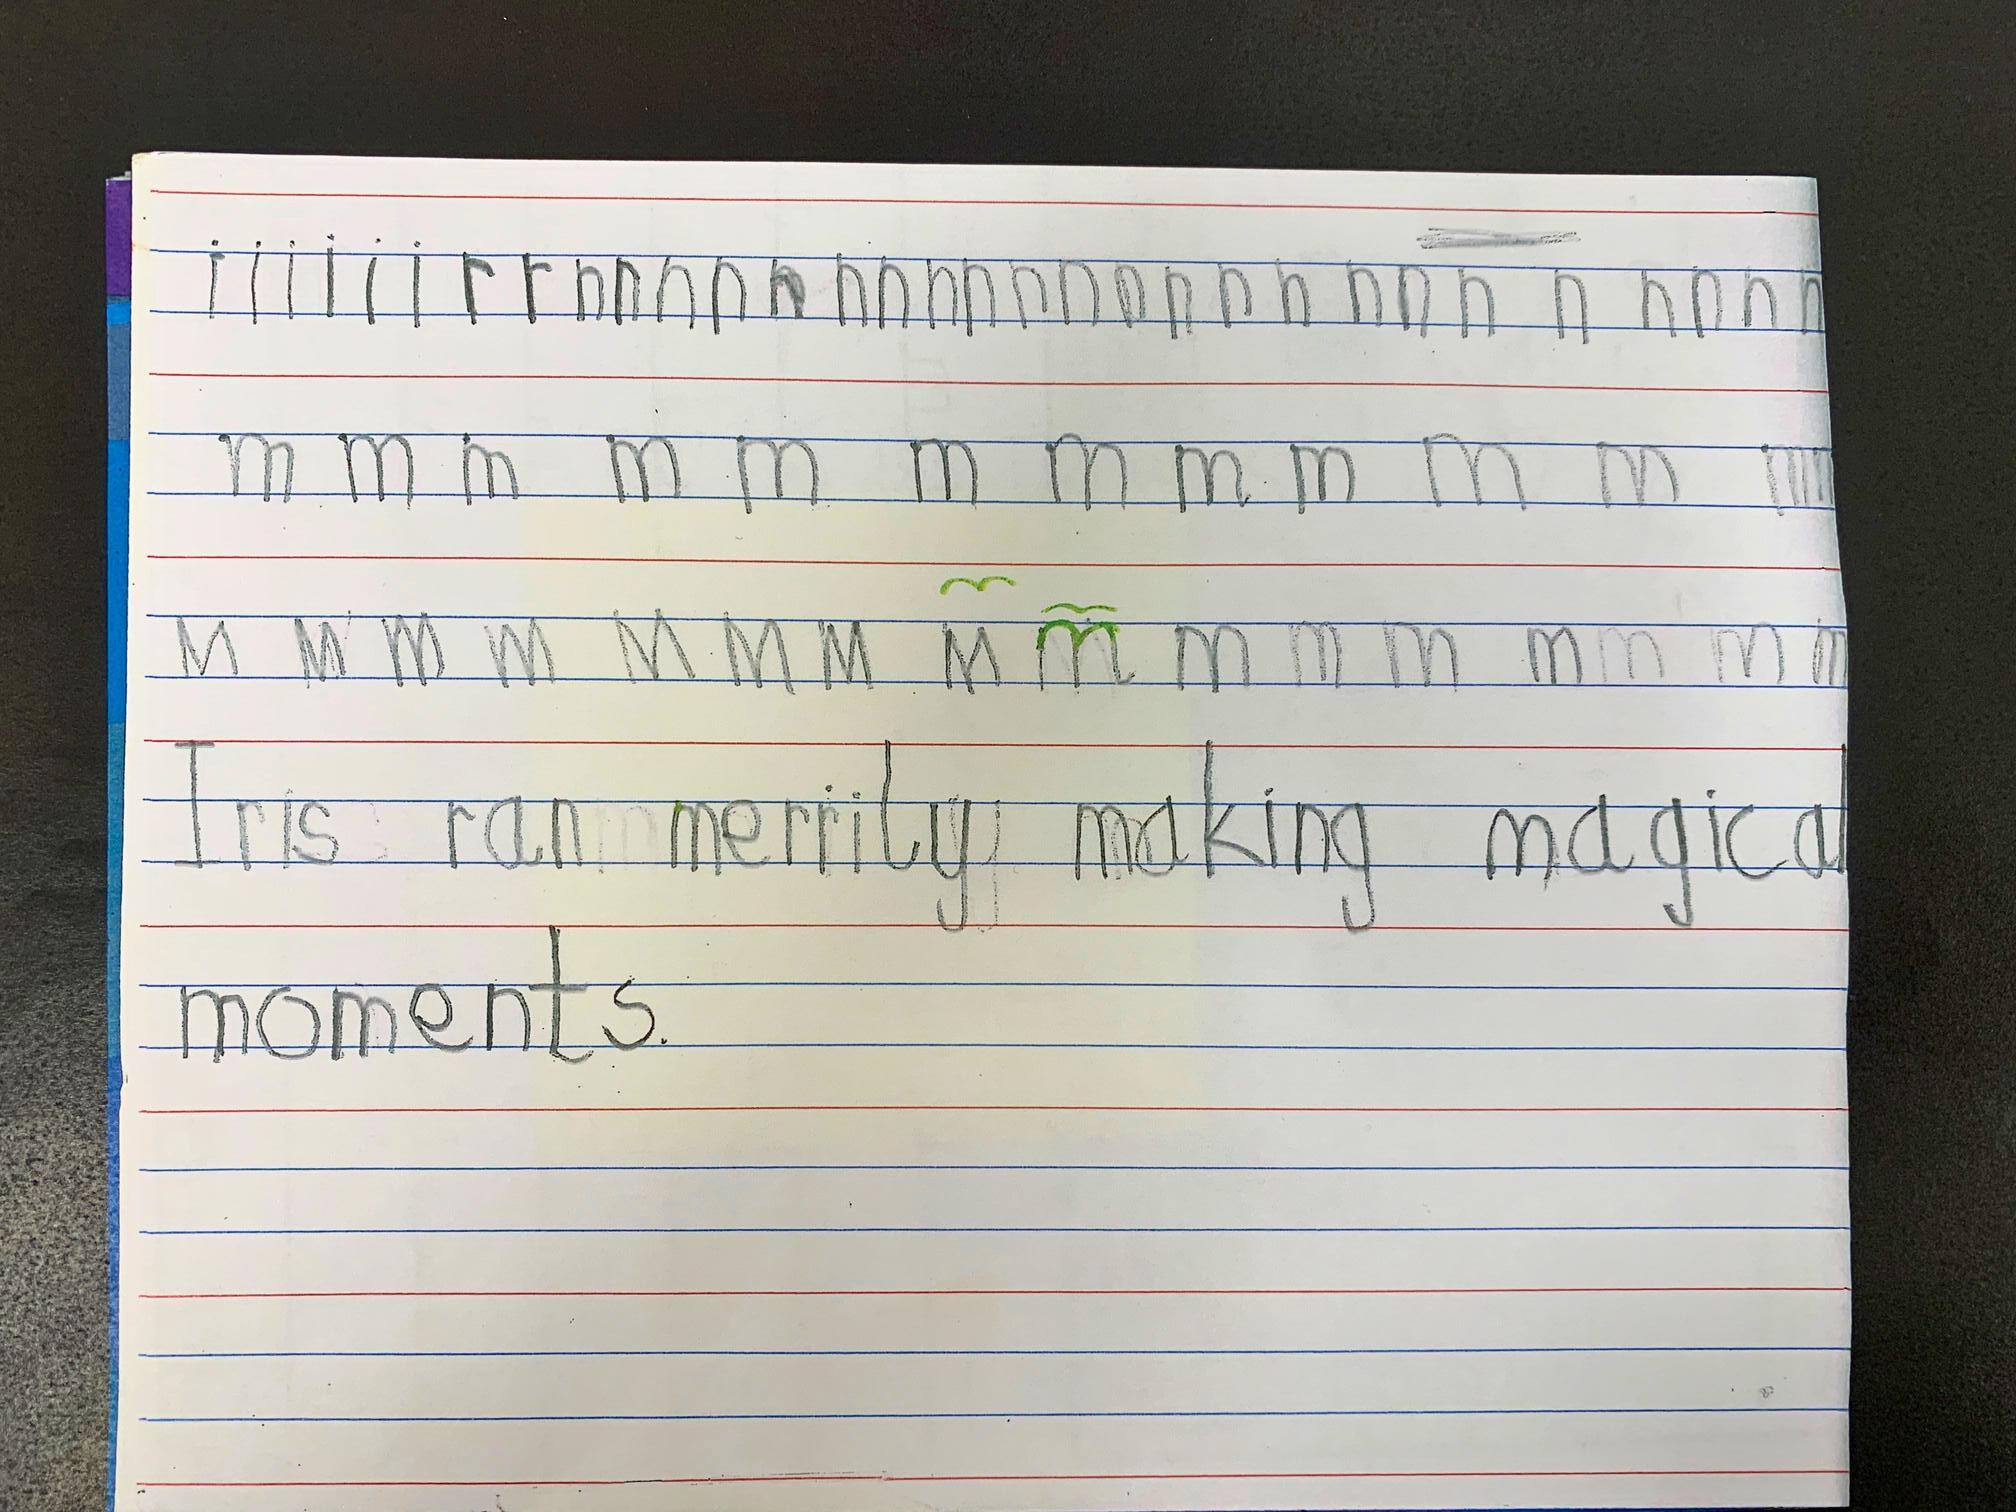 i i i i i i r r n n n n n n n n n n n n n n n n n n n n n n n
m m m m m m m m m m m m
m m m m m m m m m m m m m m m m
Iris ran merrily making magical
moments.